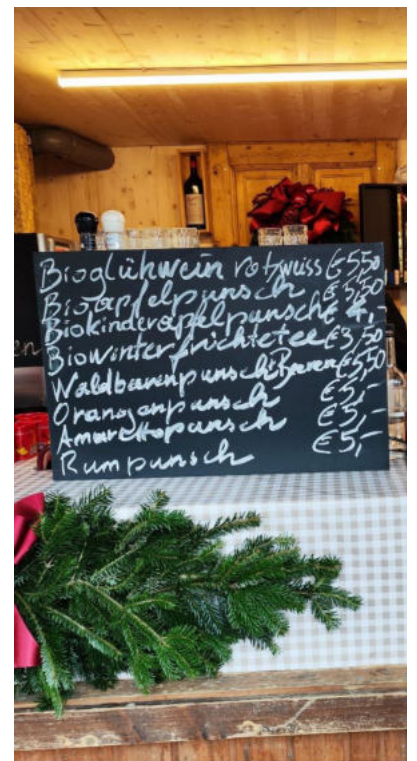 Bioglühwein rot/weiss €5,50
Bioapfelpunsch €5,50
Biokinderapfelpunsch € 4,-
Biowinterfrüchtetee €3,50
Waldbeerenpunsch+Beeren €5,50
Orangenpunsch €5,-
Amarettopunsch €5,-
Rumpunsch €5,-